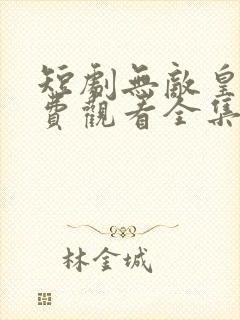 短劇無敵皇
費觀看全集
林金城